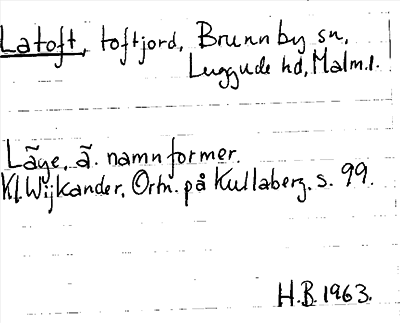 Latoft, toftjord, Brunnby sn,
Luggude hd, Malm.l.
Läge, ä. namnformer.
Kl. Wijkander, Ortn. på Kullaberg, s. 99.
H.B. 1963.